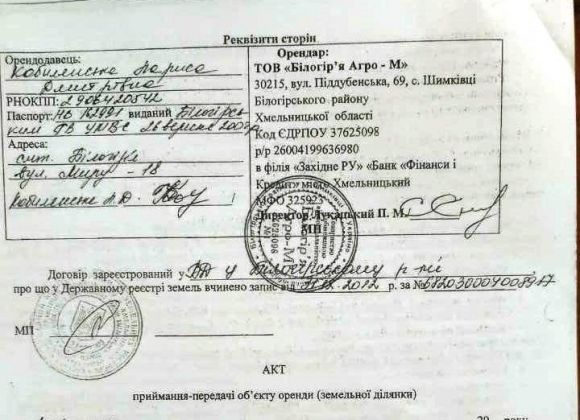 Реквізити сторін
Орендодавець:
Кобилянська Лариса
Дмитрівна
РНОКПП: 2908420542
Паспорт: НВ 162991 виданий Білогірсь
ким РВ УМВС 26 вересня
Адреса:
смт. Білогір'я
вул. Миру - 18
Орендар:
ТОВ «Білогір'я Агро - М»
30215, вул. Піддубенська, 69, с. Шимківці
Білогірського району
Хмельницької області
Код ЄДРПОУ 37625098
р/р 26004199636980
в філія «Західне РУ» «Банк «Фінанси і
Кредит» місто Хмельницький
МФО 325923
Директор Лукацький П. М.
МП
Договір зареєстрований у Білогірському р-ні
про що у Державному реєстрі земель вчинено запис від 2012 р. за №
МП
АКТ
приймання-передачі об'єкту оренди (земельної ділянки)
20 року